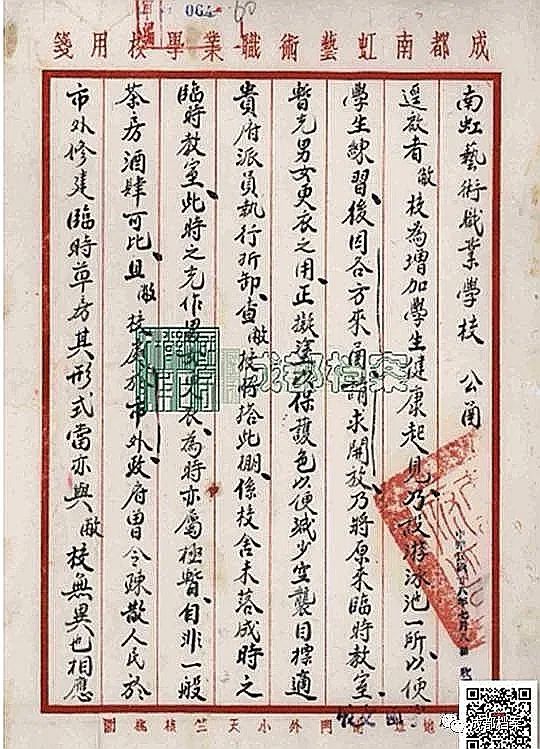 064
60
成都南虹藝術職業學校用箋
南虹藝術職業學校 公函
逕啟者敝校為增加學生健康起見乃設游泳池一所以便
學生練習後因各方來函請求開放乃將原來臨時教室
暫充男女更衣之用正擬塗以保護色以便減少空襲目標適
貴府派員執行拆卸查敝校所搭此棚係校舍未落成時之
臨時教室此時之充作男女更衣為時亦屬極暫自非一般
茶房酒肆可比且敝校於市外政府曾令疎散人民於
市外修建臨時草房其形式當亦與敝校無異也相應
門外小天竺
成都档案
成都档案